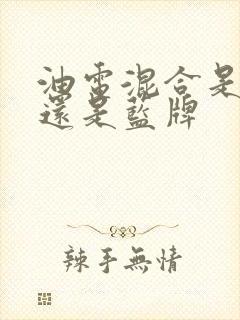 油電混合是
還是藍牌
辣手無情